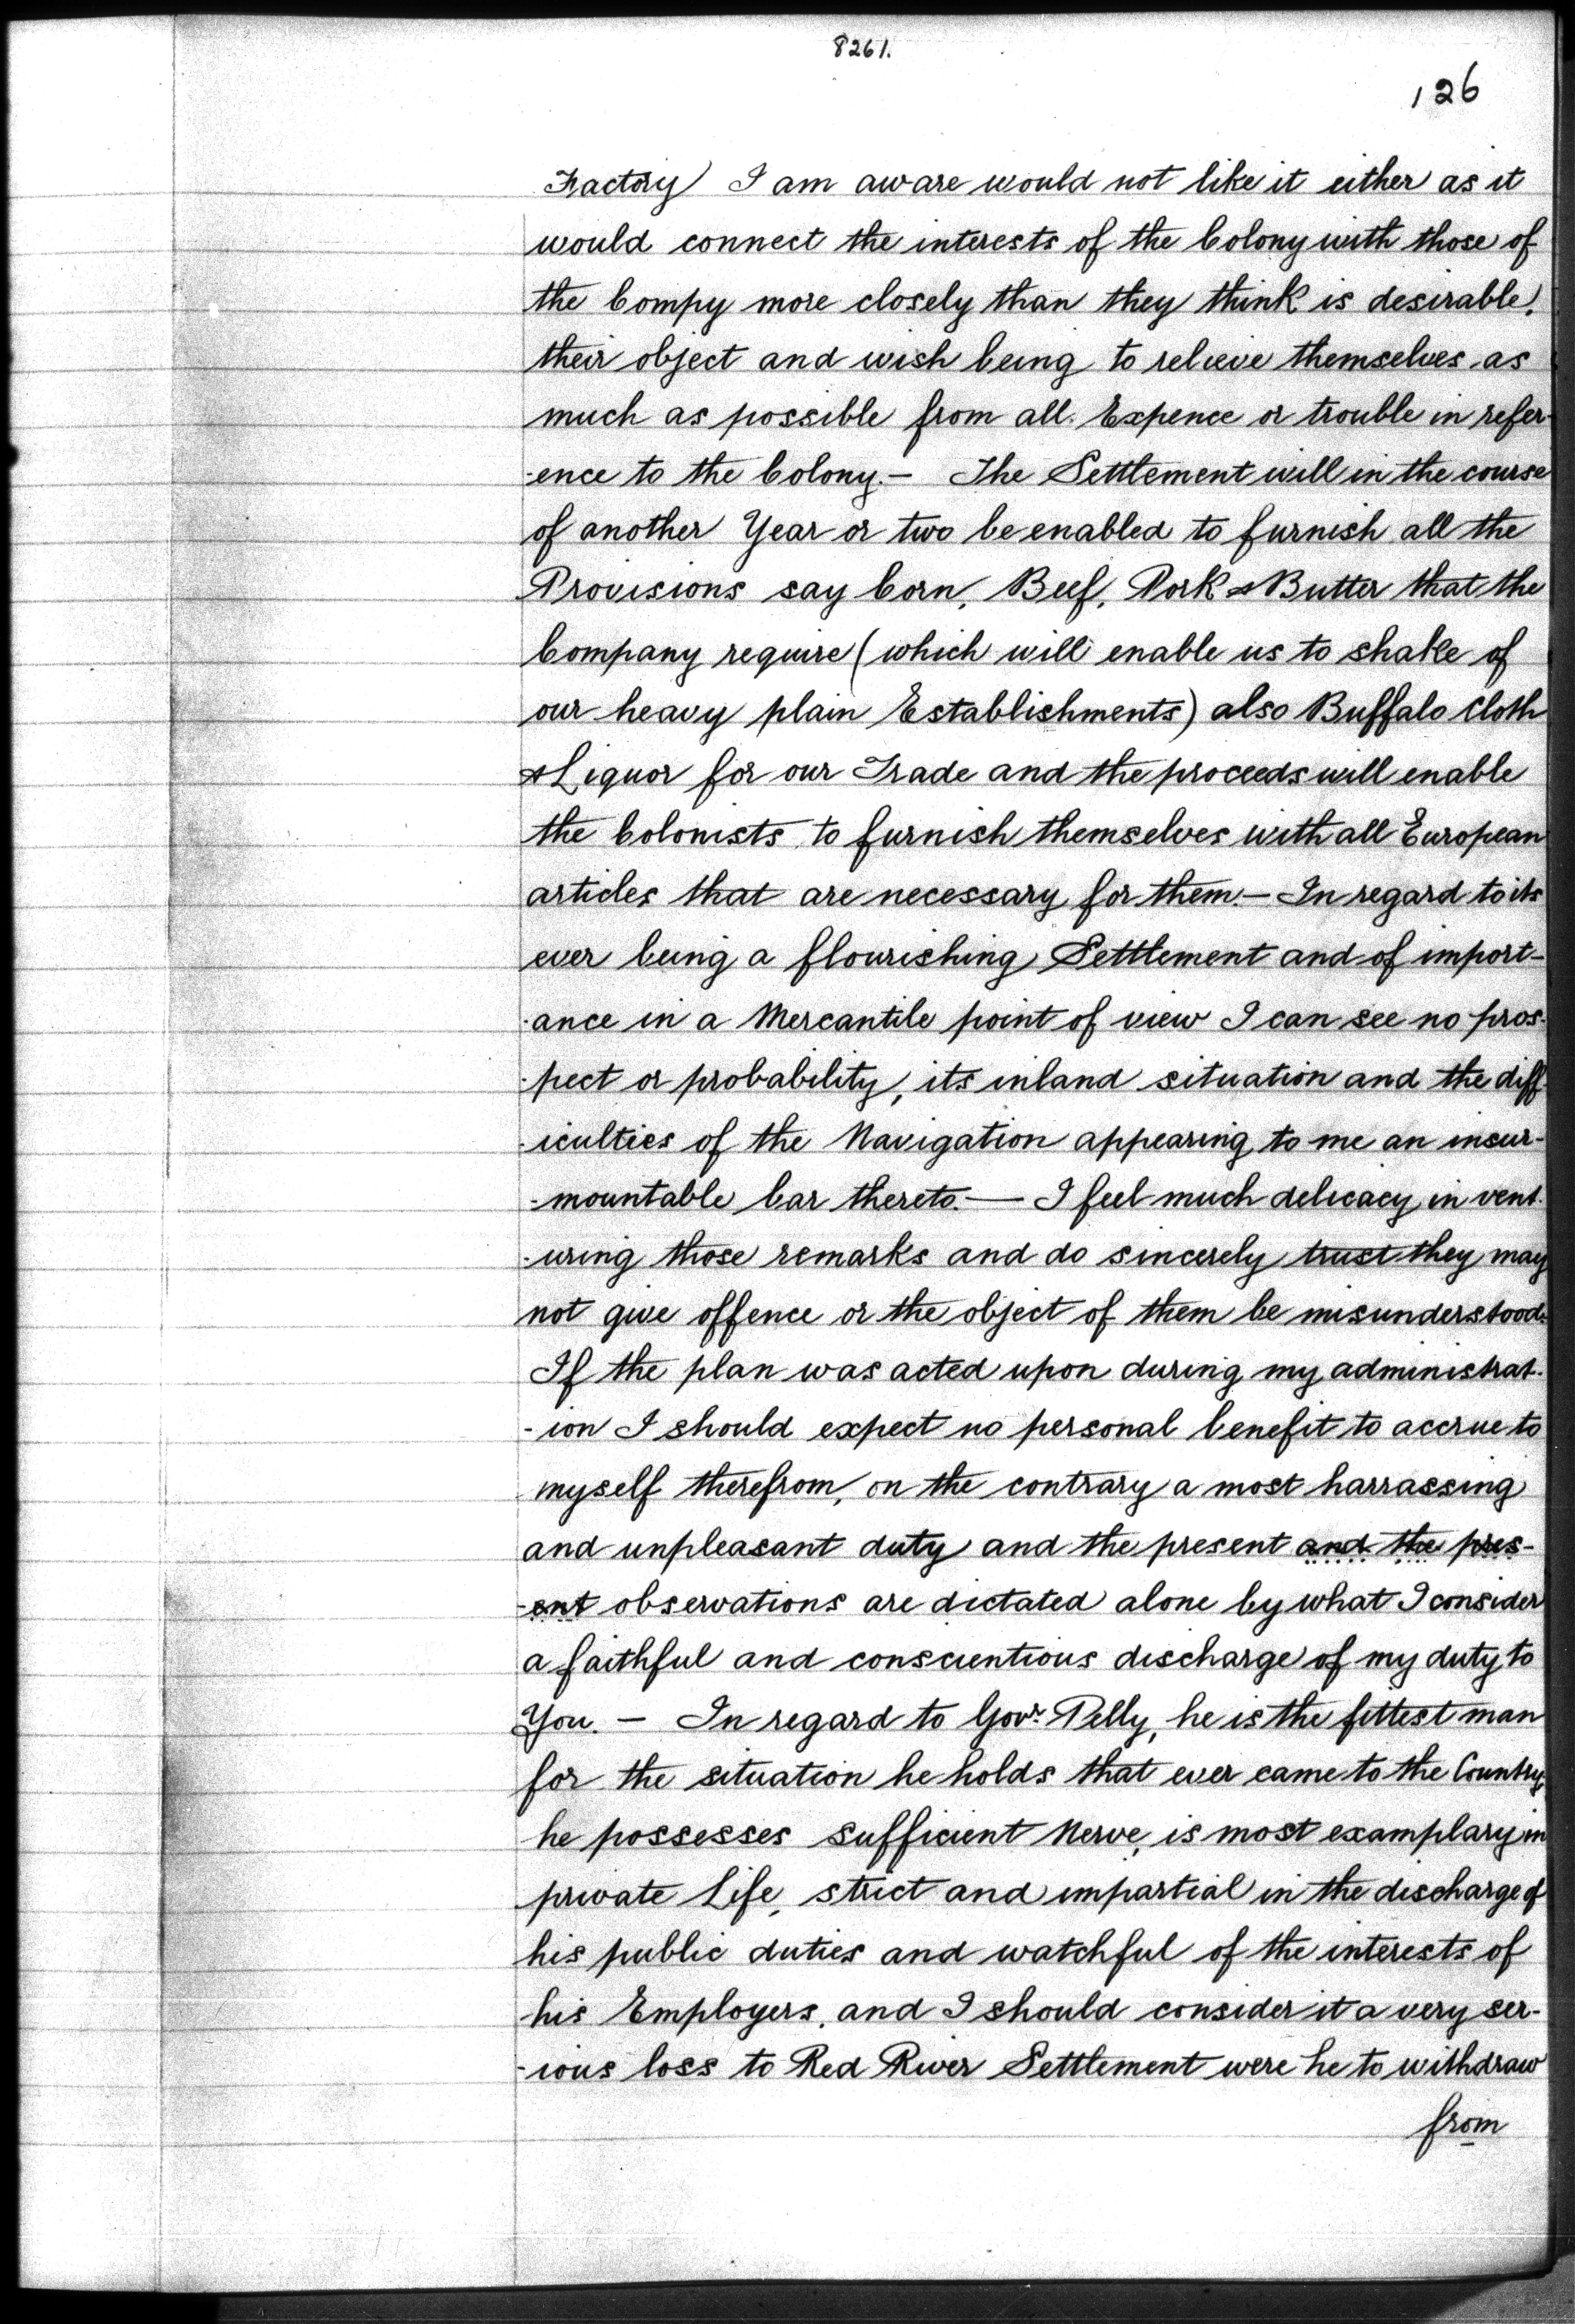 8261.
126
Factory I am aware would not like it either as it
would connect the interests of the Colony with those of
the Compy more closely than they think is desirable,
their object and wish being to relieve themselves as
much as possible from all Expence or trouble in refer-
-ence to the Colony.— The Settlement will in the course
of another Year or two be enabled to furnish all the
Provisions say Corn, Beef, Pork & Butter that the
Company require (which will enable us to shake of
our heavy plain Establishments) also Buffalo Cloth
& Liquor for our Trade and the proceeds will enable
the Colonists to furnish themselves with all European
articles that are necessary for them.— In regard to its
ever being a flourishing Settlement and of import-
-ance in a Mercantile point of view I can see no pros-
-pect or probability, its inland situation and the diff-
-iculties of the Navigation appearing to me an insur-
-mountable bar thereto.— I feel much delicacy in vent-
-uring those remarks and do sincerely trust they may
not give offence or the object of them be misunderstood.
If the plan was acted upon during my administrat-
-ion I should expect no personal benefit to accrue to
myself therefrom, on the contrary a most harrassing
and unpleasant duty and the present and the pres-
-ent observations are dictated alone by what I consider
a faithful and conscientious discharge of my duty to
You. — In regard to Govr. Pelly, he is the fittest man
for the situation he holds that ever came to the Country,
he possesses sufficient Nerve, is most examplary in
private Life, strict and impartial in the discharge of
his public duties and watchful of the interests of
his Employers, and I should consider it a very ser-
-ious loss to Red River Settlement were he to withdraw
from